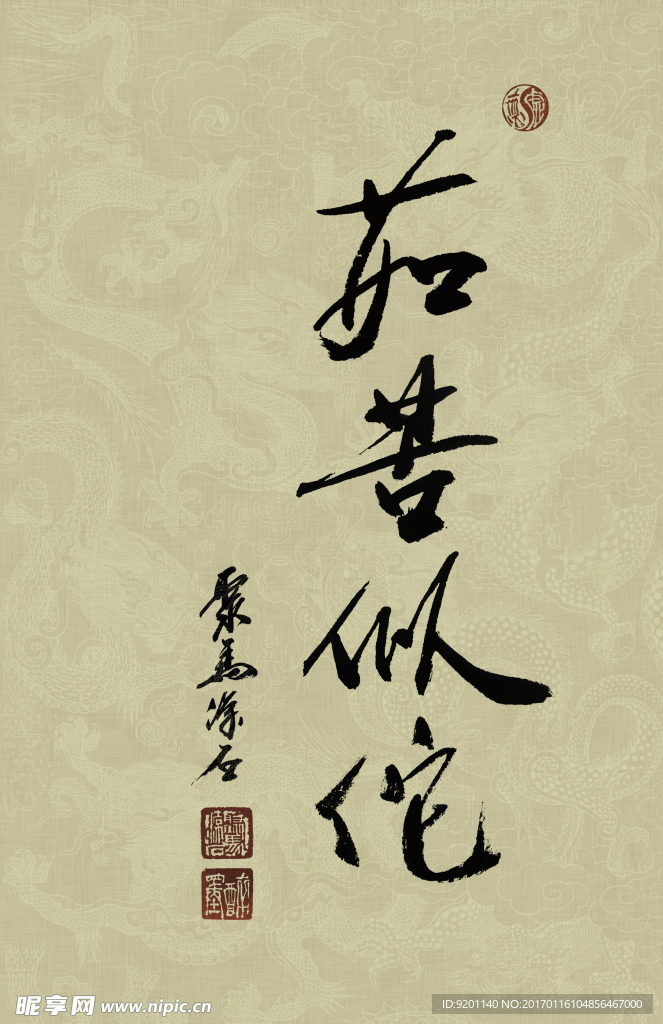 茹苦似佗
聚马深石
昵享网 www.nipic.cn
ID:9201140 NO:20170116104856467000